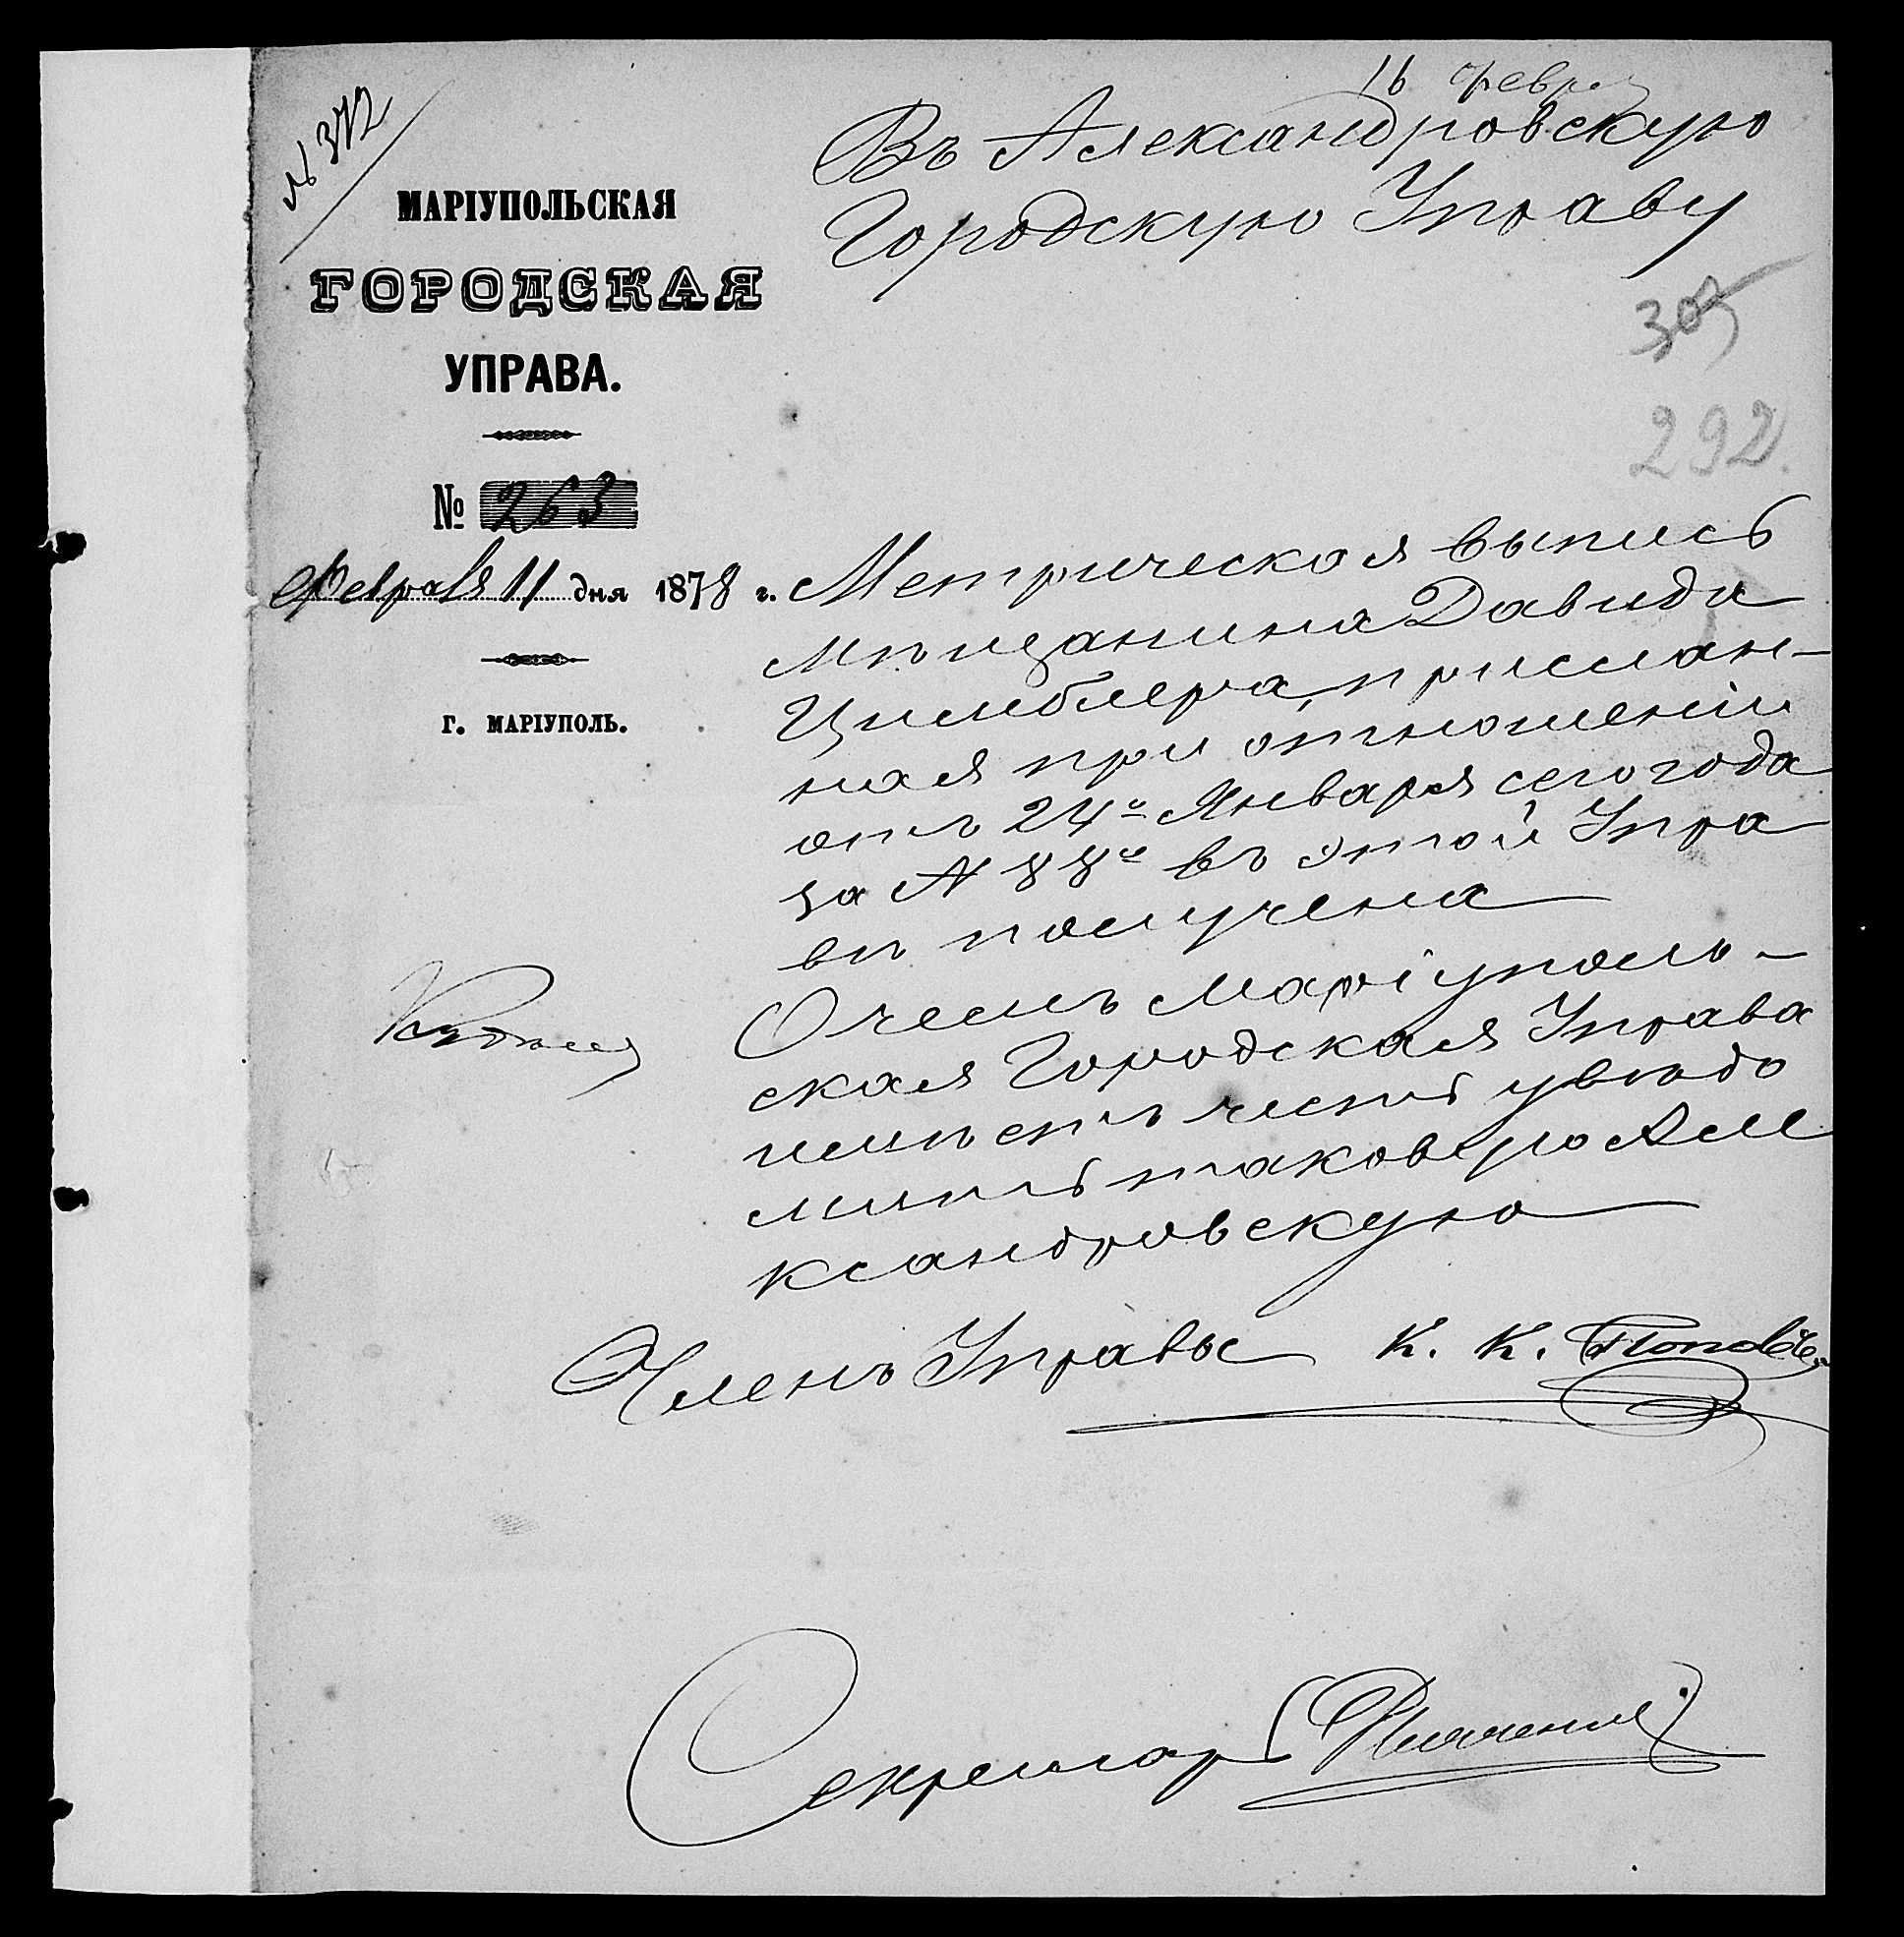 16 февр
№ 372
МАРІУПОЛЬСКАЯ
ГОРОДСКАЯ
УПРАВА.
№ 263
Февраля 11 дня 1878 г.
Г. МАРІУПОЛЬ.
Въ Александровскую
Городскую Управу
305
292
Метрическая выпись
мѣщанина Давида
Цимблера, прислан-
ная при отношеніи
отъ 24го Января сего года
за № 88ю въ этой Упра
вѣ получена
О чемъ Маріуполь-
ская Городская Управа
имѣетъ честь увѣдо
мить таковую Але
ксандровскую
Членъ Управы К. К. Поповъ
Секретарь